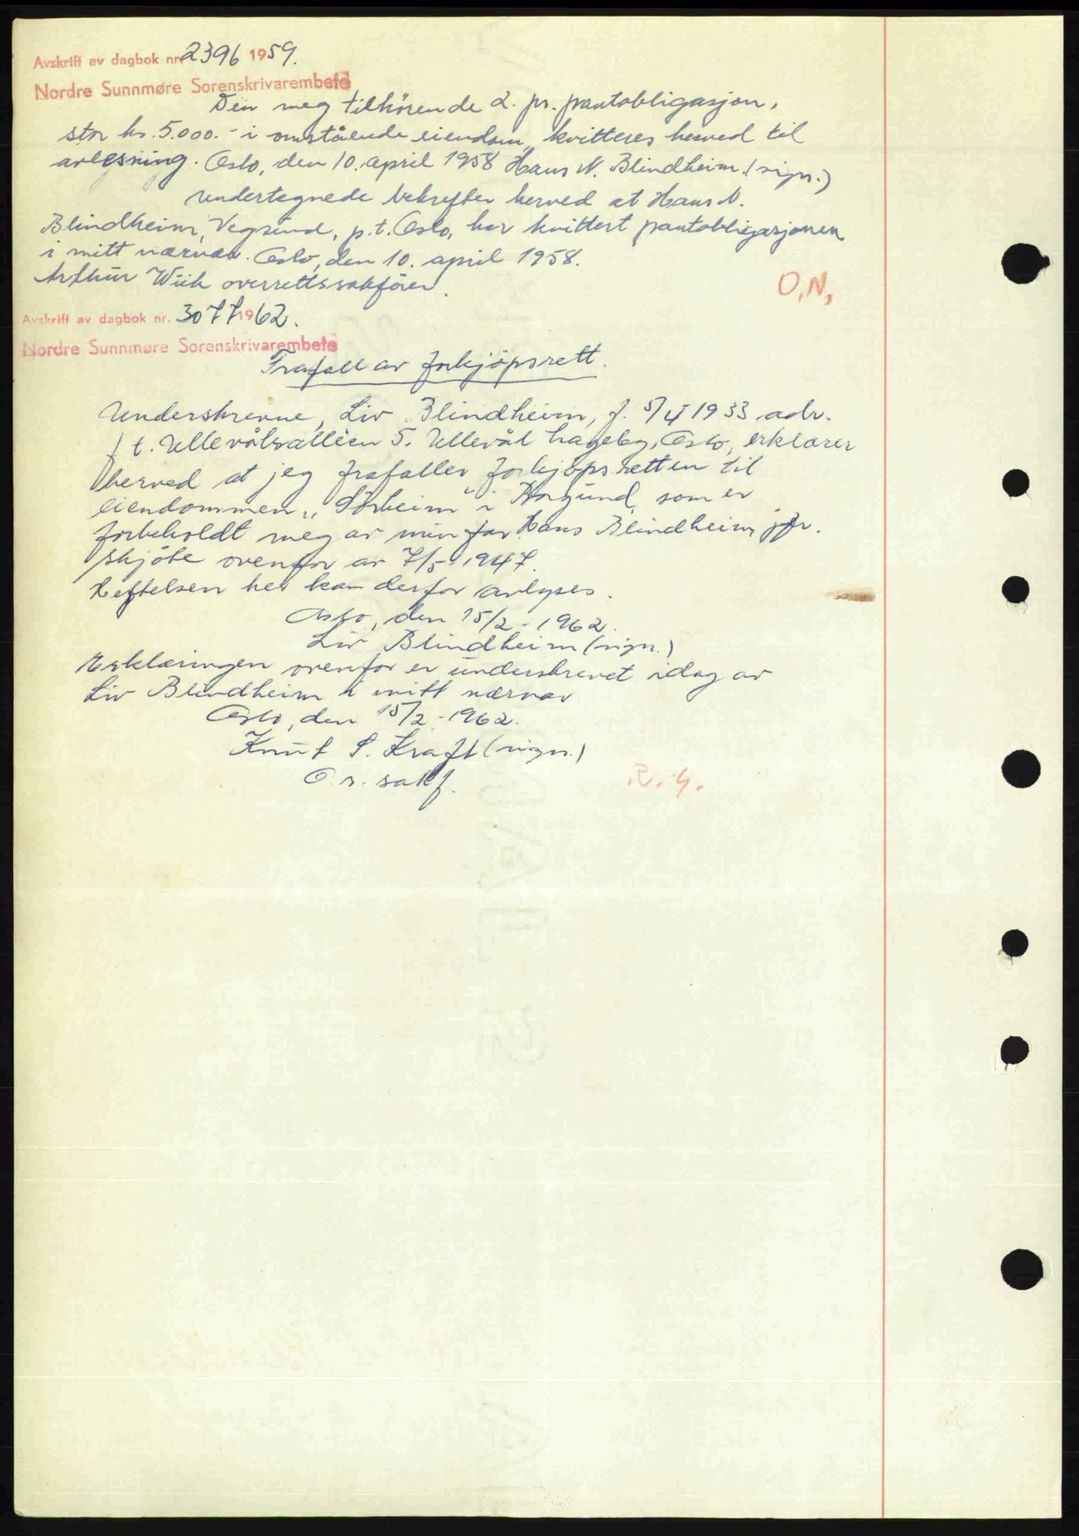 Avskrift av dagbok nr. 2396 1959.
Nordre Sunnmøre Sorenskrivarembete
Den meg tilhörende 2. pr. pantobligasjon,
stor kr. 5.000.- i omstående eiendom, kvitteres herved til
avlesning. Oslo, den 10. april 1958 Hans N. Blindheim. (sign.)
Undertegnede bekrefter herved at Hans N.
Blindheim, Vegsund, p.t. Oslo, har kvittert pantobligasjonen
i mitt nærvær. Oslo, den 10. april 1958.
Arthur Wiik overrettssakförer.
O.N.
Avskrift av dagbok nr. 3077 1962.
Nordre Sunnmøre Sorenskrivarembete
Frafall av forkjöpsrett.
Underskrevne, Liv Blindheim, f. 5/4 1933 adr.
f t. Ullevålsalléen 5. Ullevål hageby, Oslo, erklærer
herved at jeg frafaller forkjöpsretten til
eiendommen "Sörheim" i Borgund, som er
forbeholdt meg av min far Hans Blindheim jfr.
skjöte ovenfor av 7/5 1947.
Heftelsen her kan derfor avlyses.
Oslo, den 15/2 - 1962.
Liv Blindheim (sign.)
Erklæringen ovenfor er underskrevet idag av
Liv Blindheim i mitt nærvær
Oslo, den 15/2 - 1962.
Knut S. Kraft (sign.)
O.r. sakf.
R.G.